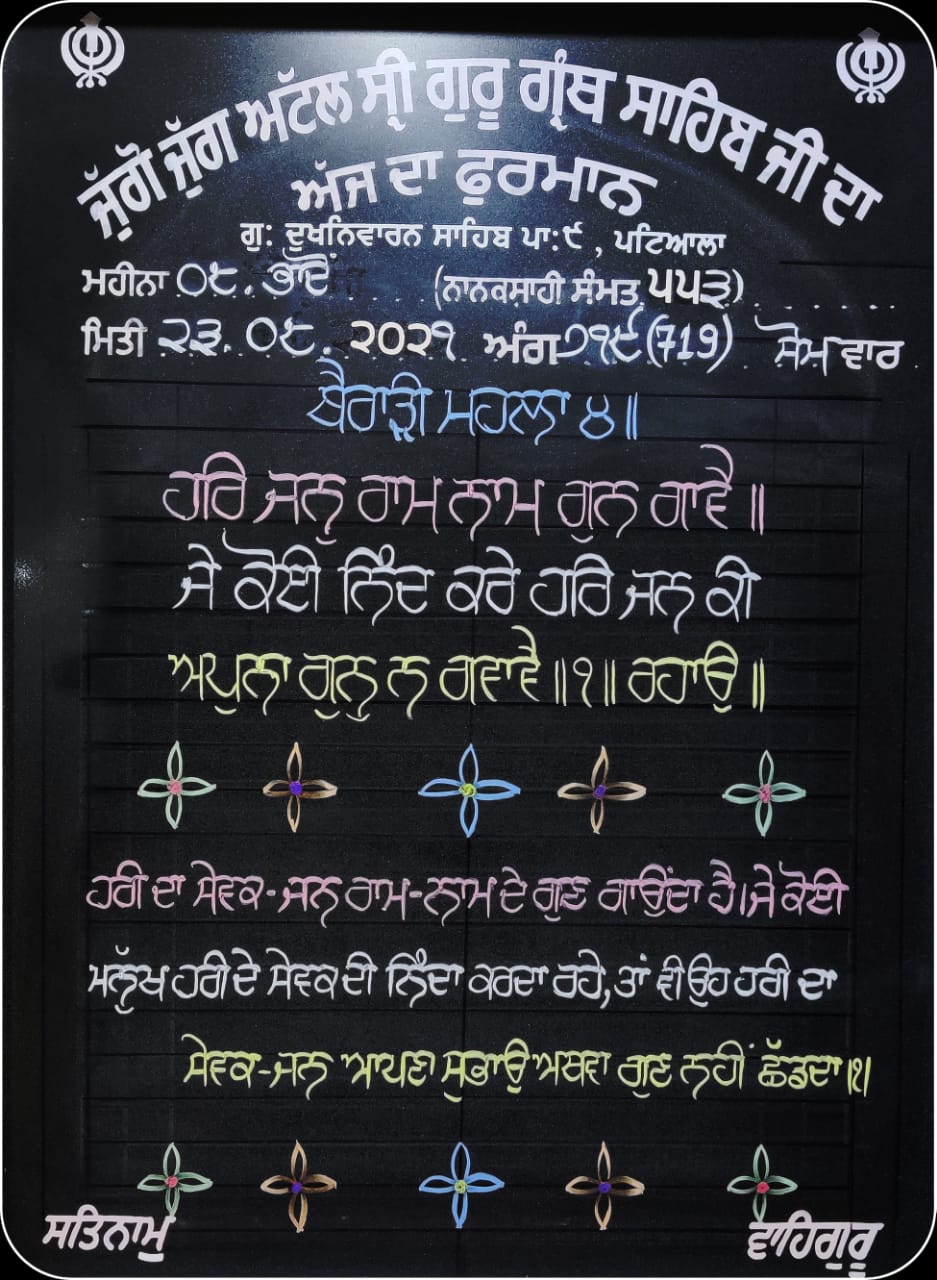 ਜੁੱਗੋ ਜੁੱਗ ਅਟੱਲ ਸ੍ਰੀ ਗੁਰੂ ਗ੍ਰੰਥ ਸਾਹਿਬ ਜੀ ਦਾ
ਅੱਜ ਦਾ ਫੁਰਮਾਨ
ਗੁ: ਦੁਖਨਿਵਾਰਨ ਸਾਹਿਬ ਪਾ:੯ , ਪਟਿਆਲਾ
ਮਹੀਨਾ ੦੮. ਭਾਦੋਂ (ਨਾਨਕਸਾਹੀ ਸੰਮਤ ੫੫੩)
ਮਿਤੀ ੨੩. ੦੮. ੨੦੨੧ ਅੰਗ ੭੧੯ (719) ਸੋਮਵਾਰ
ਬੈਰਾੜੀ ਮਹਲਾ ੪॥
ਹਰਿ ਜਨੁ ਰਾਮ ਨਾਮ ਗੁਨ ਗਾਵੈ ॥
ਜੇ ਕੋਈ ਨਿੰਦ ਕਰੇ ਹਰਿ ਜਨ ਕੀ
ਅਪੁਨਾ ਗੁਨੁ ਨ ਗਵਾਵੈ ॥੧॥ ਰਹਾਉ ॥
ਹਰੀ ਦਾ ਸੇਵਕ-ਜਨ ਰਾਮ-ਨਾਮ ਦੇ ਗੁਣ ਗਾਉਂਦਾ ਹੈ।ਜੇ ਕੋਈ
ਮਨੁੱਖ ਹਰੀ ਦੇ ਸੇਵਕ ਦੀ ਨਿੰਦਾ ਕਰਦਾ ਰਹੇ, ਤਾਂ ਵੀ ਉਹ ਹਰੀ ਦਾ
ਸੇਵਕ-ਜਨ ਆਪਣਾ ਸੁਭਾਉ ਅਥਵਾ ਗੁਣ ਨਹੀਂ ਛੱਡਦਾ।੧।
ਸਤਿਨਾਮੁ ਵਾਹਿਗੁਰੂ